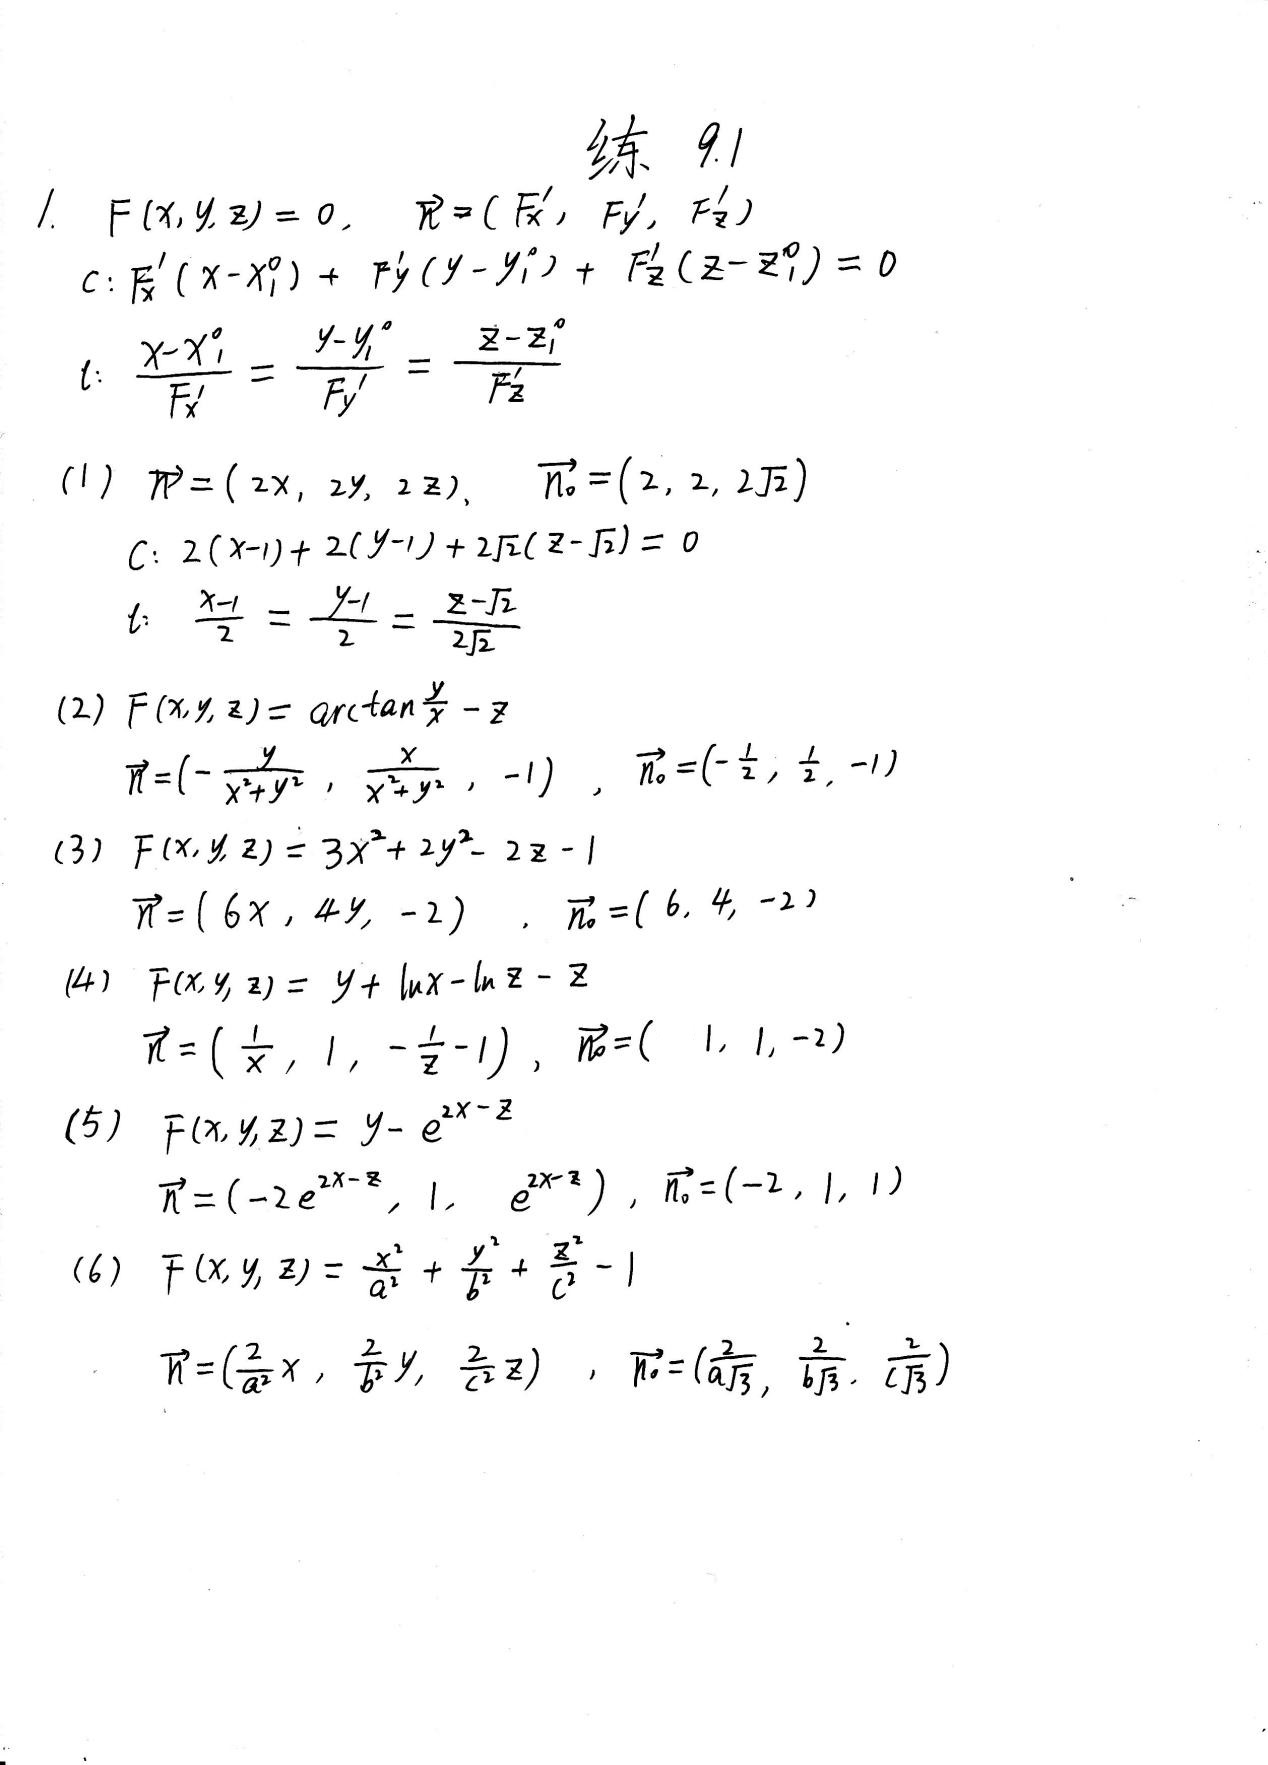 练 9.1
1. F(x, y, z) = 0, n⃗ = (Fx′, Fy′, Fz′)
C: Fx′(x-x₁⁰) + Fy′(y-y₁⁰) + Fz′(z-z₁⁰) = 0
l: (x-x₁⁰)/Fx′ = (y-y₁⁰)/Fy′ = (z-z₁⁰)/Fz′
(1) n⃗ = (2x, 2y, 2z), n₀⃗ = (2, 2, 2√2)
C: 2(x-1) + 2(y-1) + 2√2(z-√2) = 0
l: (x-1)/2 = (y-1)/2 = (z-√2)/(2√2)
(2) F(x, y, z) = arctan y/x - z
n⃗ = (- y/(x²+y²), x/(x²+y²), -1), n₀⃗ = (-1/2, 1/2, -1)
(3) F(x, y, z) = 3x² + 2y² - 2z - 1
n⃗ = (6x, 4y, -2), n₀⃗ = (6, 4, -2)
(4) F(x, y, z) = y + lnx - ln z - z
n⃗ = (1/x, 1, -1/z - 1), n₀⃗ = (1, 1, -2)
(5) F(x, y, z) = y - e^(2x-z)
n⃗ = (-2e^(2x-z), 1, e^(2x-z)), n₀⃗ = (-2, 1, 1)
(6) F(x, y, z) = x²/a² + y²/b² + z²/c² - 1
n⃗ = (2/a² x, 2/b² y, 2/c² z), n₀⃗ = (2/(a√3), 2/(b√3), 2/(c√3))